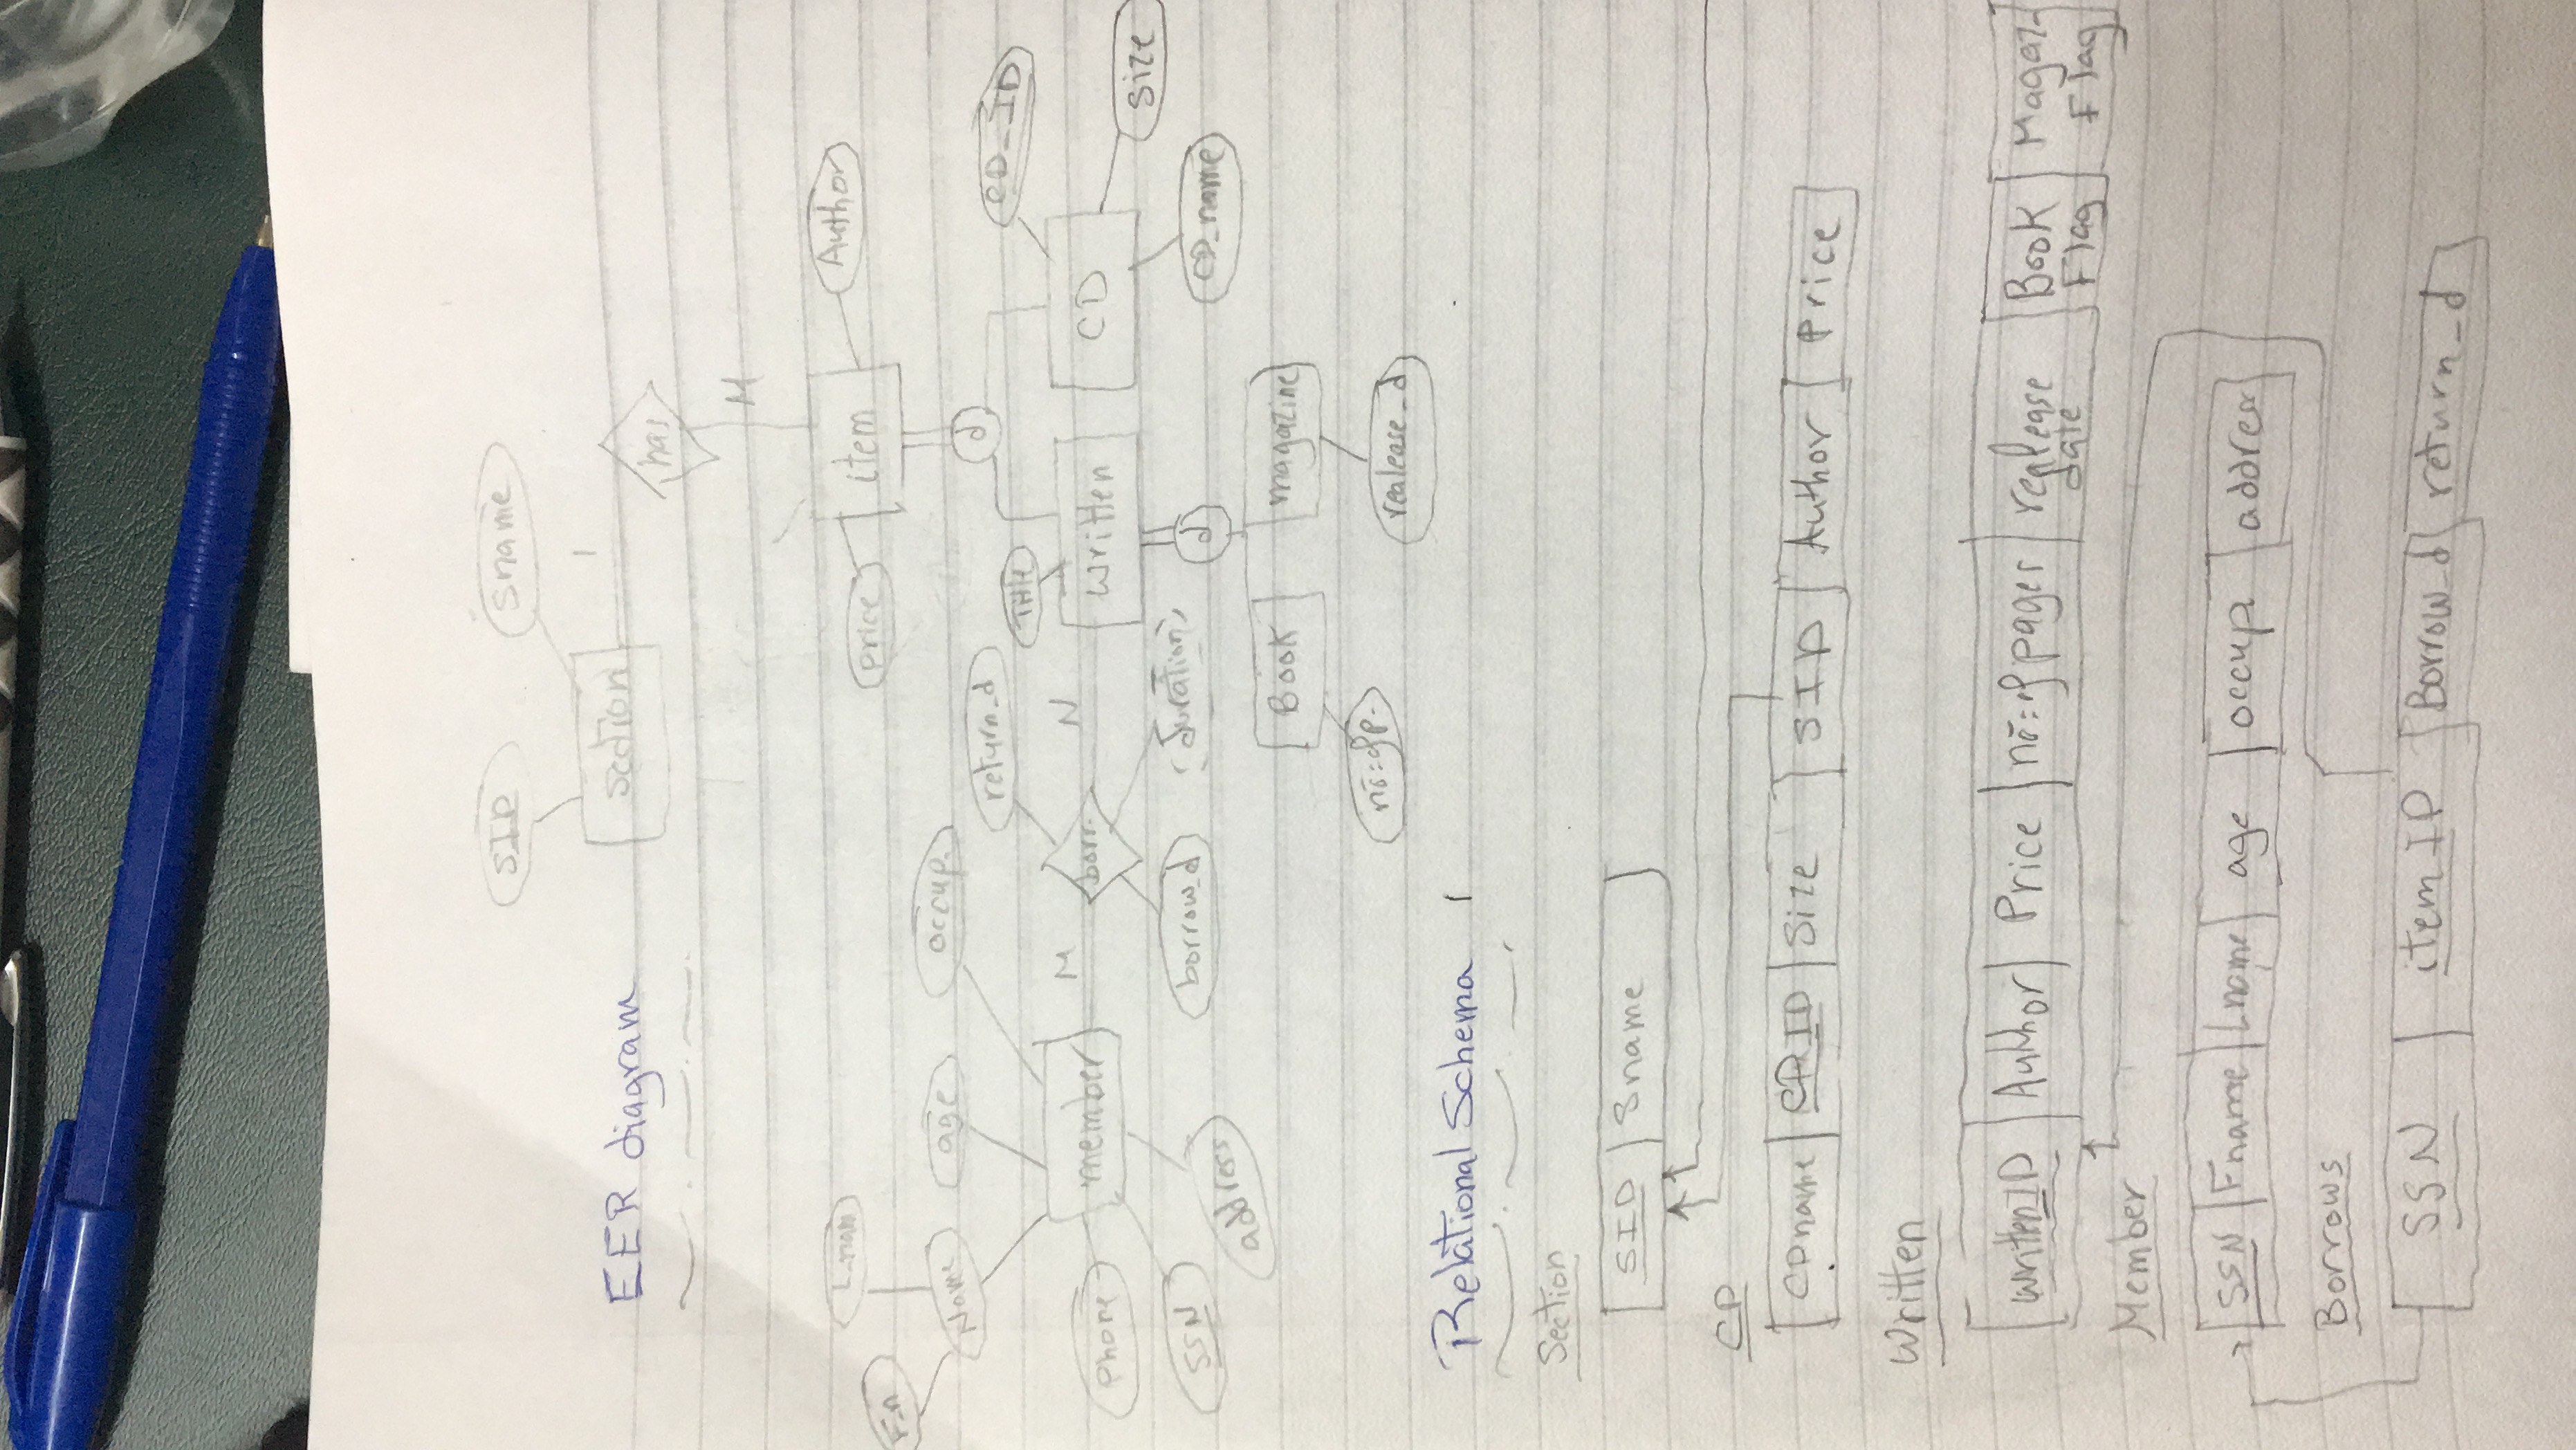 SID Sname
section 1
EER diagram
has
M
Author
L_nam
price item
F_n
Name age occup.
return_d d CD_ID
Title
member M borr. N written CD
phone
size
SSN borrow_d (duration) d CD_name
address
Book magazine
no=of p.
realease_d
Relational Schema 1
Section
SID Sname
CD
CDname CD_ID Size SID Author Price
Written
writtenID Author Price no=of pages realease date Book Flag Magaz- Flag
Member
SSN Fname Lname age occup. address
Borrows
SSN item ID Borrow_d return_d